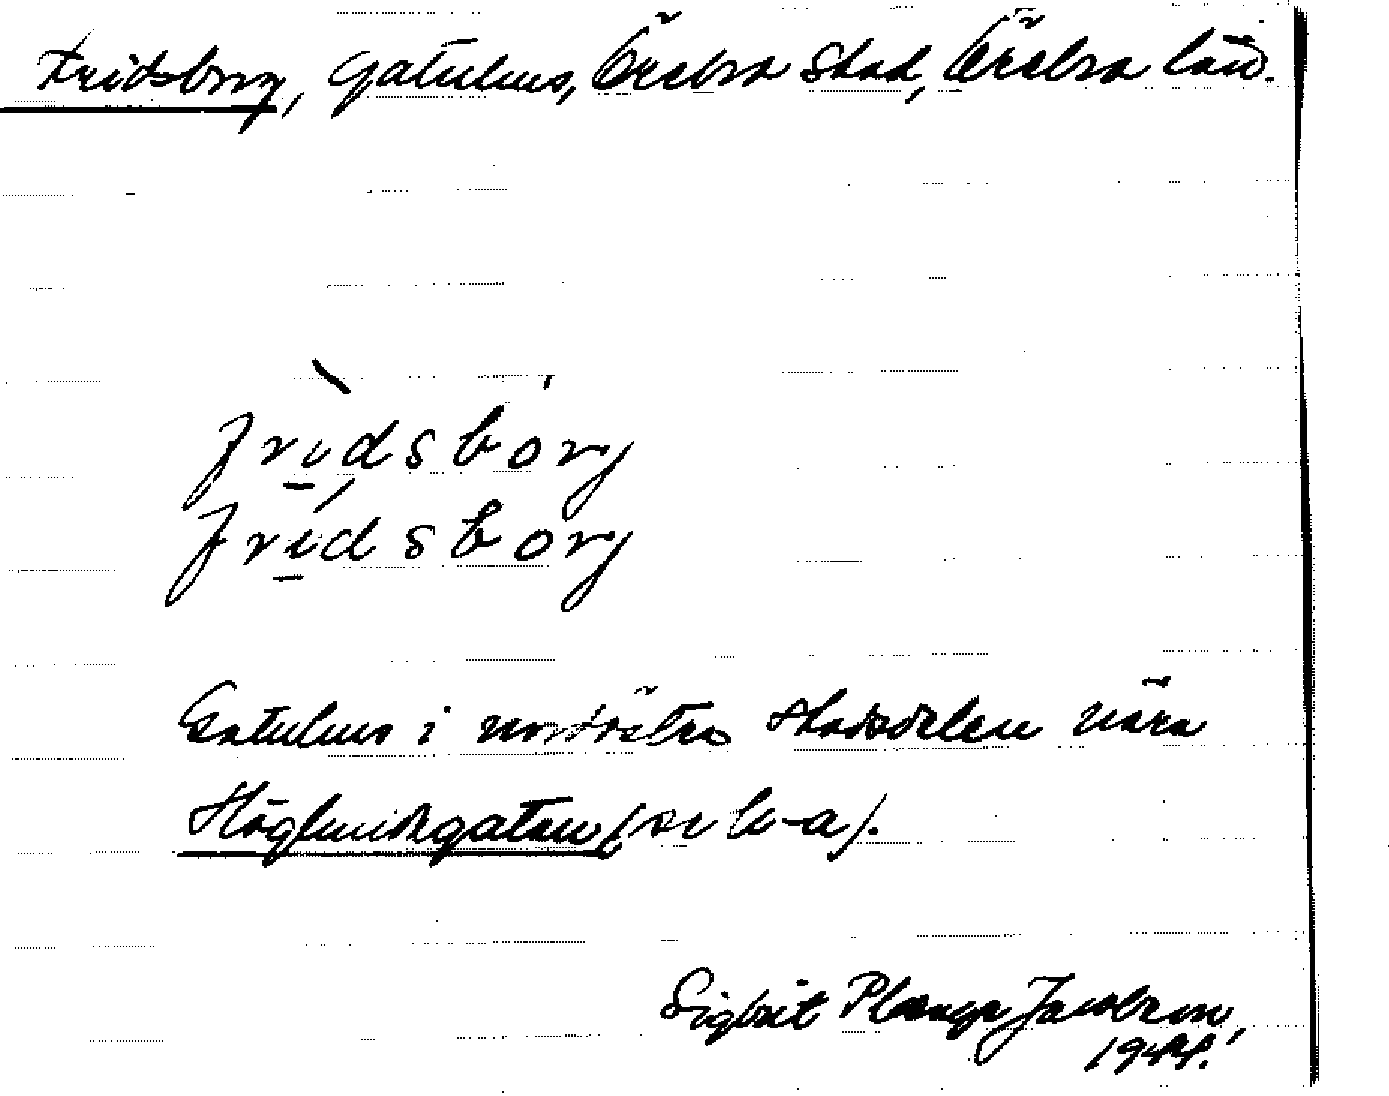 Fridsborg, Gatuhus, Örebro stad, Örebro län.
fridsbòrg
frídsborg
Gatuhus i nordöstra stadsdelen nära
Höglundagatan (se h-a).
Sigbrit Plænge Jacobson,
1944.